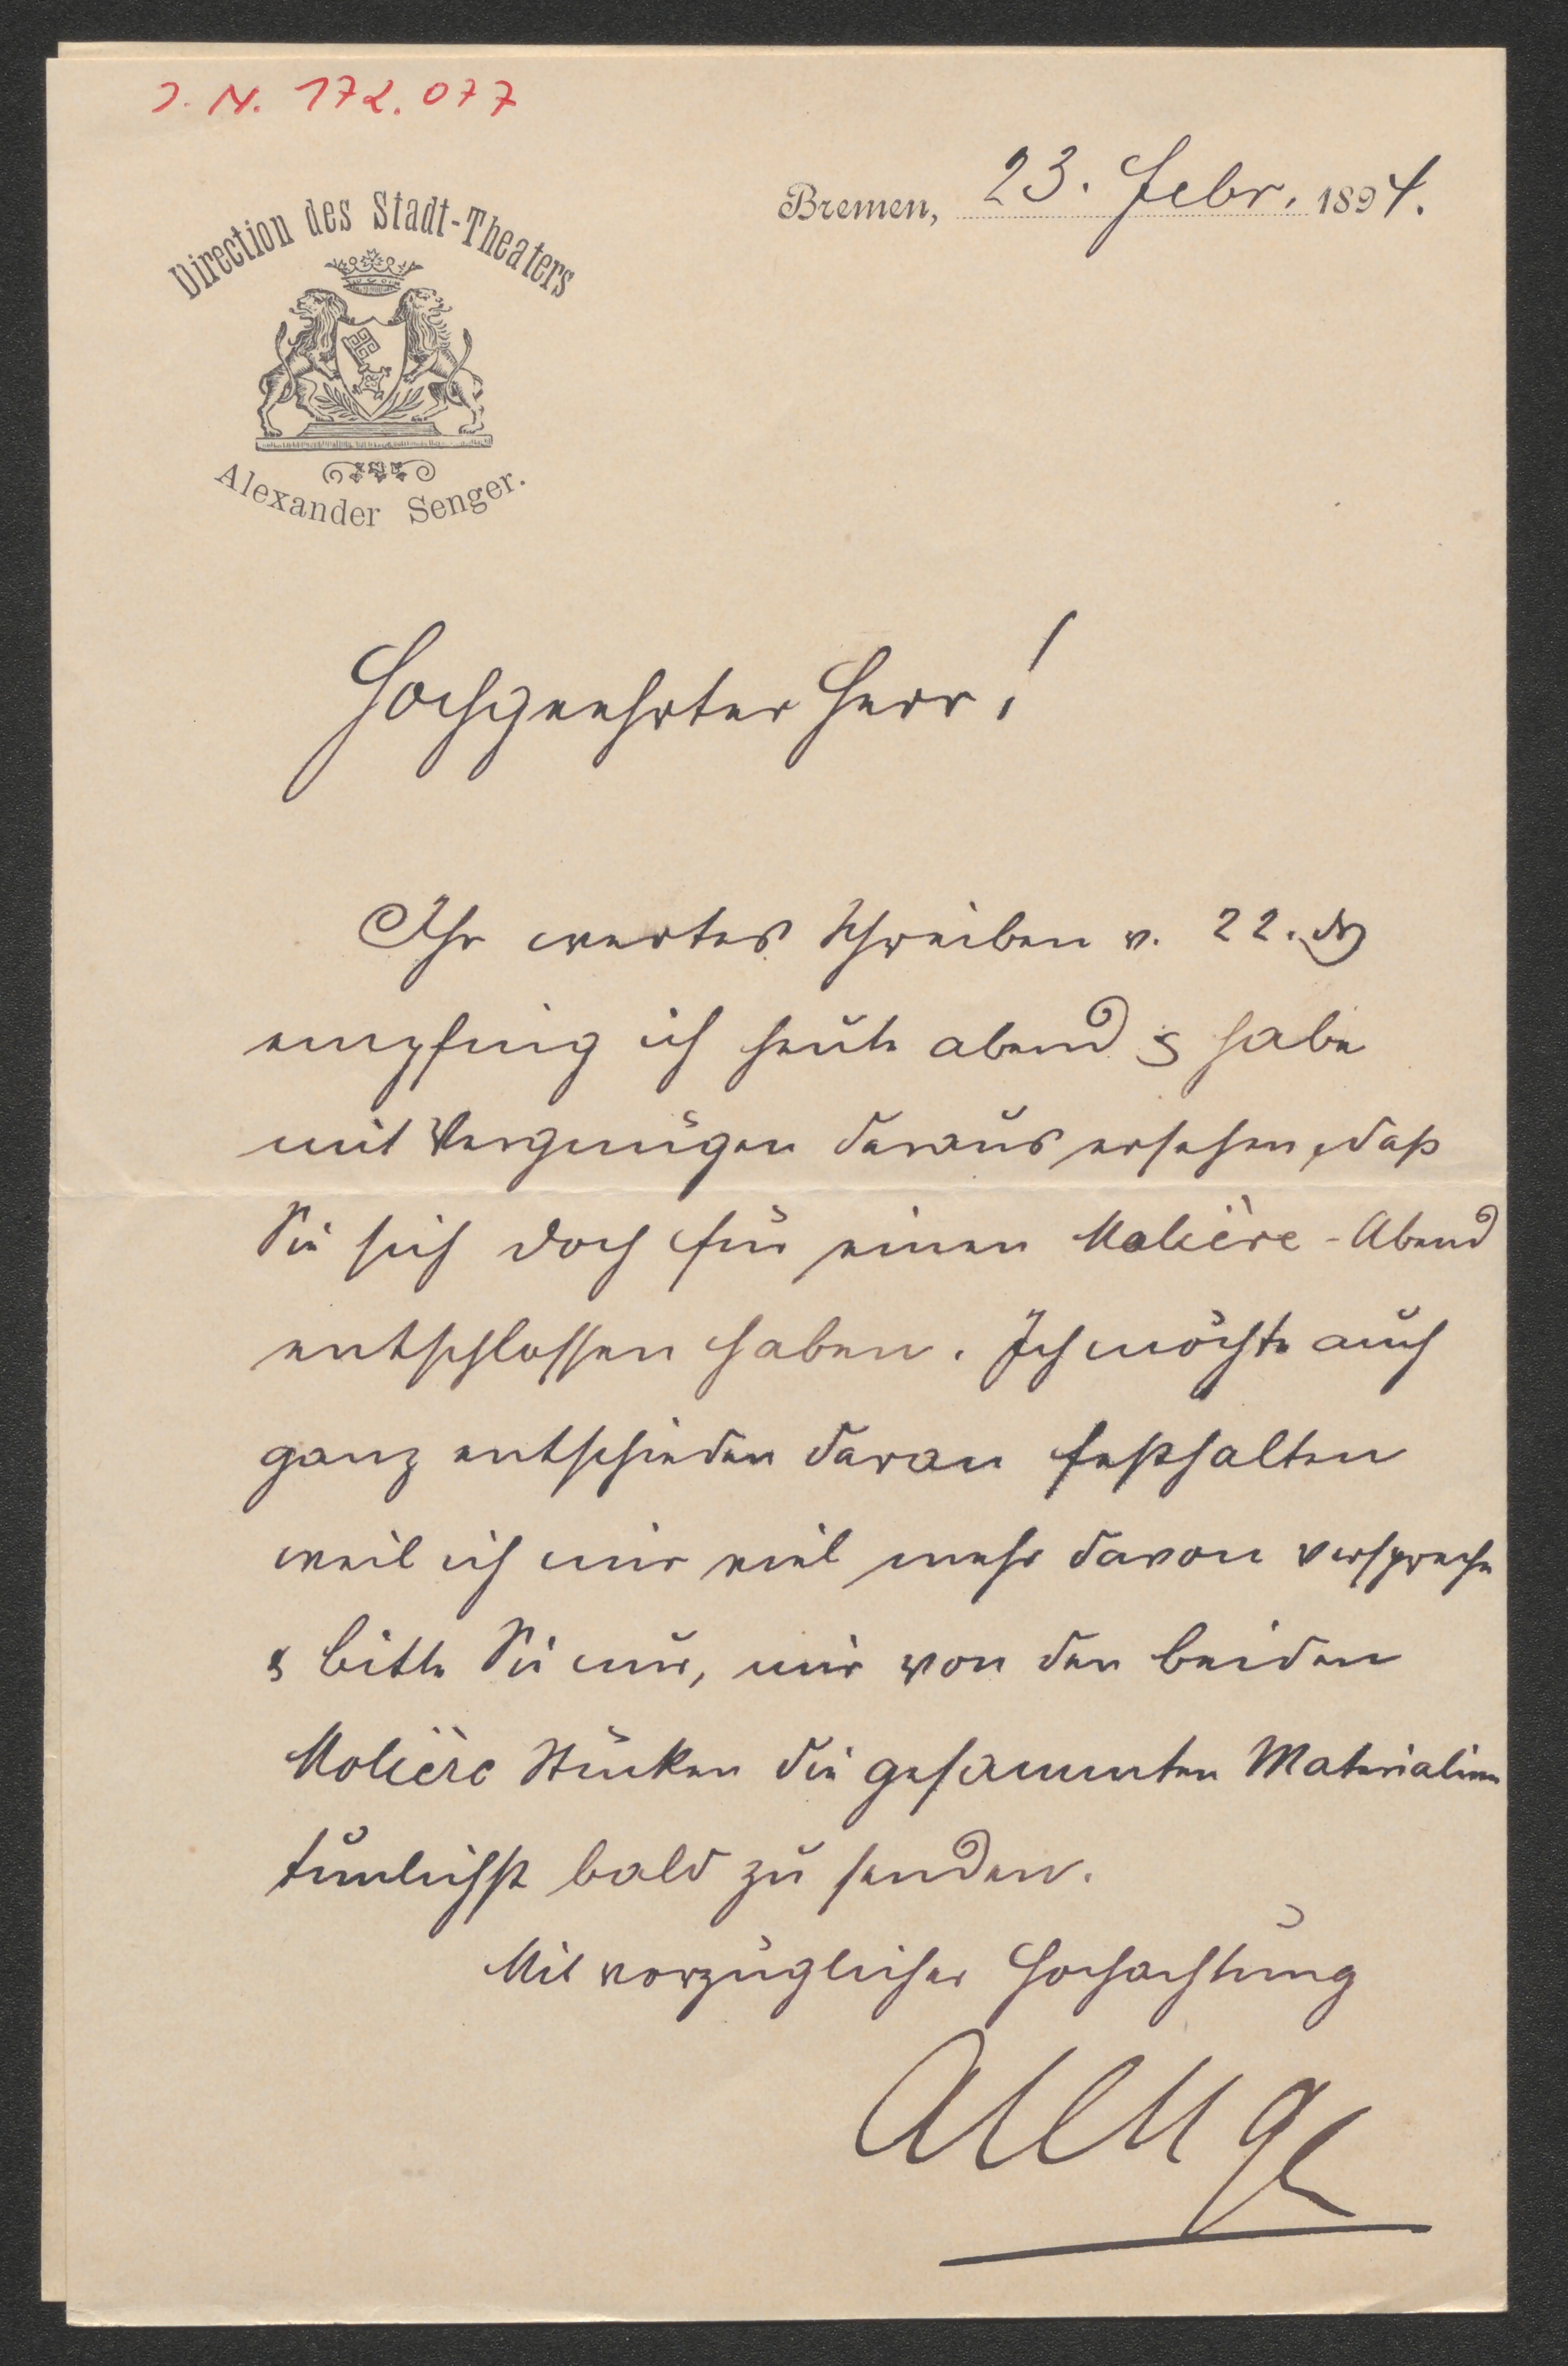 J. N. 172.077
Bremen, 23. Febr. 1894.
Direction des Stadt-Theaters
Alexander Senger.
Hochgeehrter Herr!
Ihr wertes Schreiben v. 22. ds
empfing ich heute abend & habe
mit Vergnügen daraus ersehen, daß
Sie sich doch für einen Molière-Abend
entschlossen haben. Ich möchte auch
ganz entschieden daran festhalten
weil ich mir viel mehr davon verspreche
& bitte Sie nur, mir von den beiden
Molière Stücken die gesammten Materialien
tunlichst bald zu senden.
Mit vorzüglicher Hochachtung
ASenger